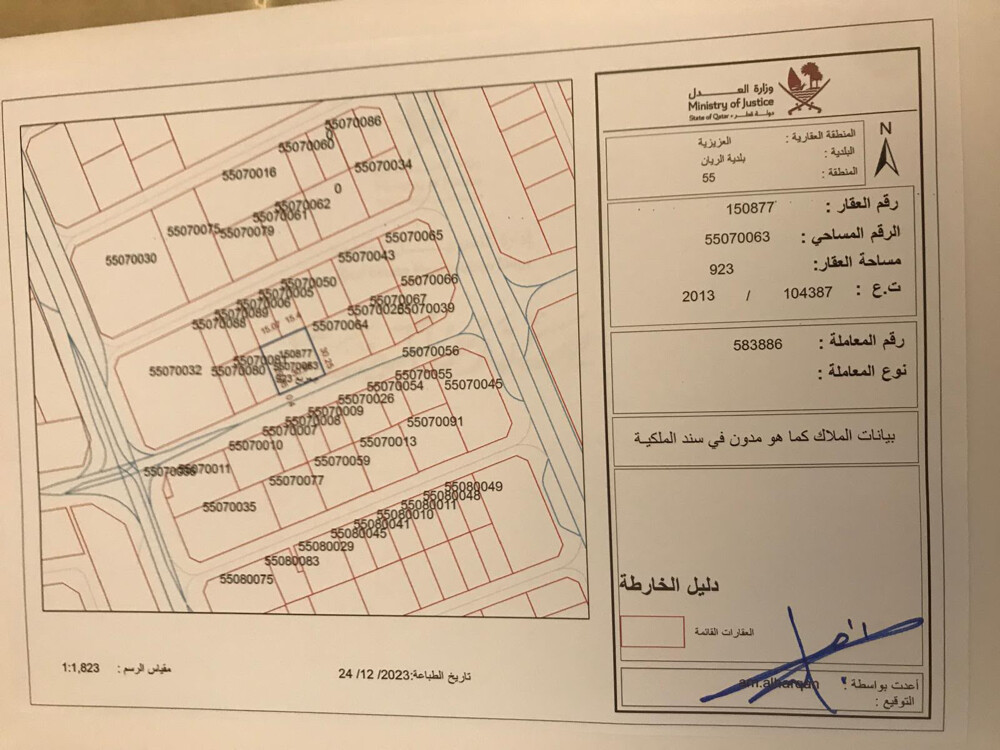 وزارة العدل
Ministry of Justice
State of Qatar • دولة قطر
N
المنطقة العقارية : العزيزية
البلدية : بلدية الريان
المنطقة : 55
رقم العقار : 150877
الرقم المساحي : 55070063
مساحة العقار: 923
ت.ع : 104387 / 2013
رقم المعاملة : 583886
نوع المعاملة :
بيانات الملاك كما هو مدون في سند الملكية
دليل الخارطة
العقارات القائمة
أعدت بواسطة :
التوقيع :
55070086
0
55070060
55070034
55070016
0
55070062
55070061
55070075
55070079
55070030
55070065
55070043
55070066
55070050
55070005
55070006
55070067
55070039
55070089
55070088
55070064
15.4
150877
55070063
923
55070032
55070080
55070056
55070055
55070045
55070054
55070026
55070009
55070008
55070091
55070007
55070013
55070010
55070059
55070011
55070077
55070035
55080049
55080048
55080011
55080010
55080041
55080045
55080029
55080083
55080075
مقياس الرسم : 1:1,823
تاريخ الطباعة:2023/ 12/ 24